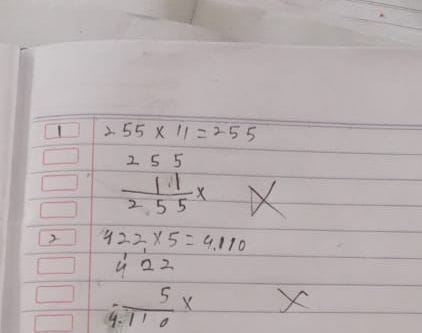 1 255 x 11 = 255
255
11 x
2.55
2 422 x 5 = 4.110
422
5 x
4.110